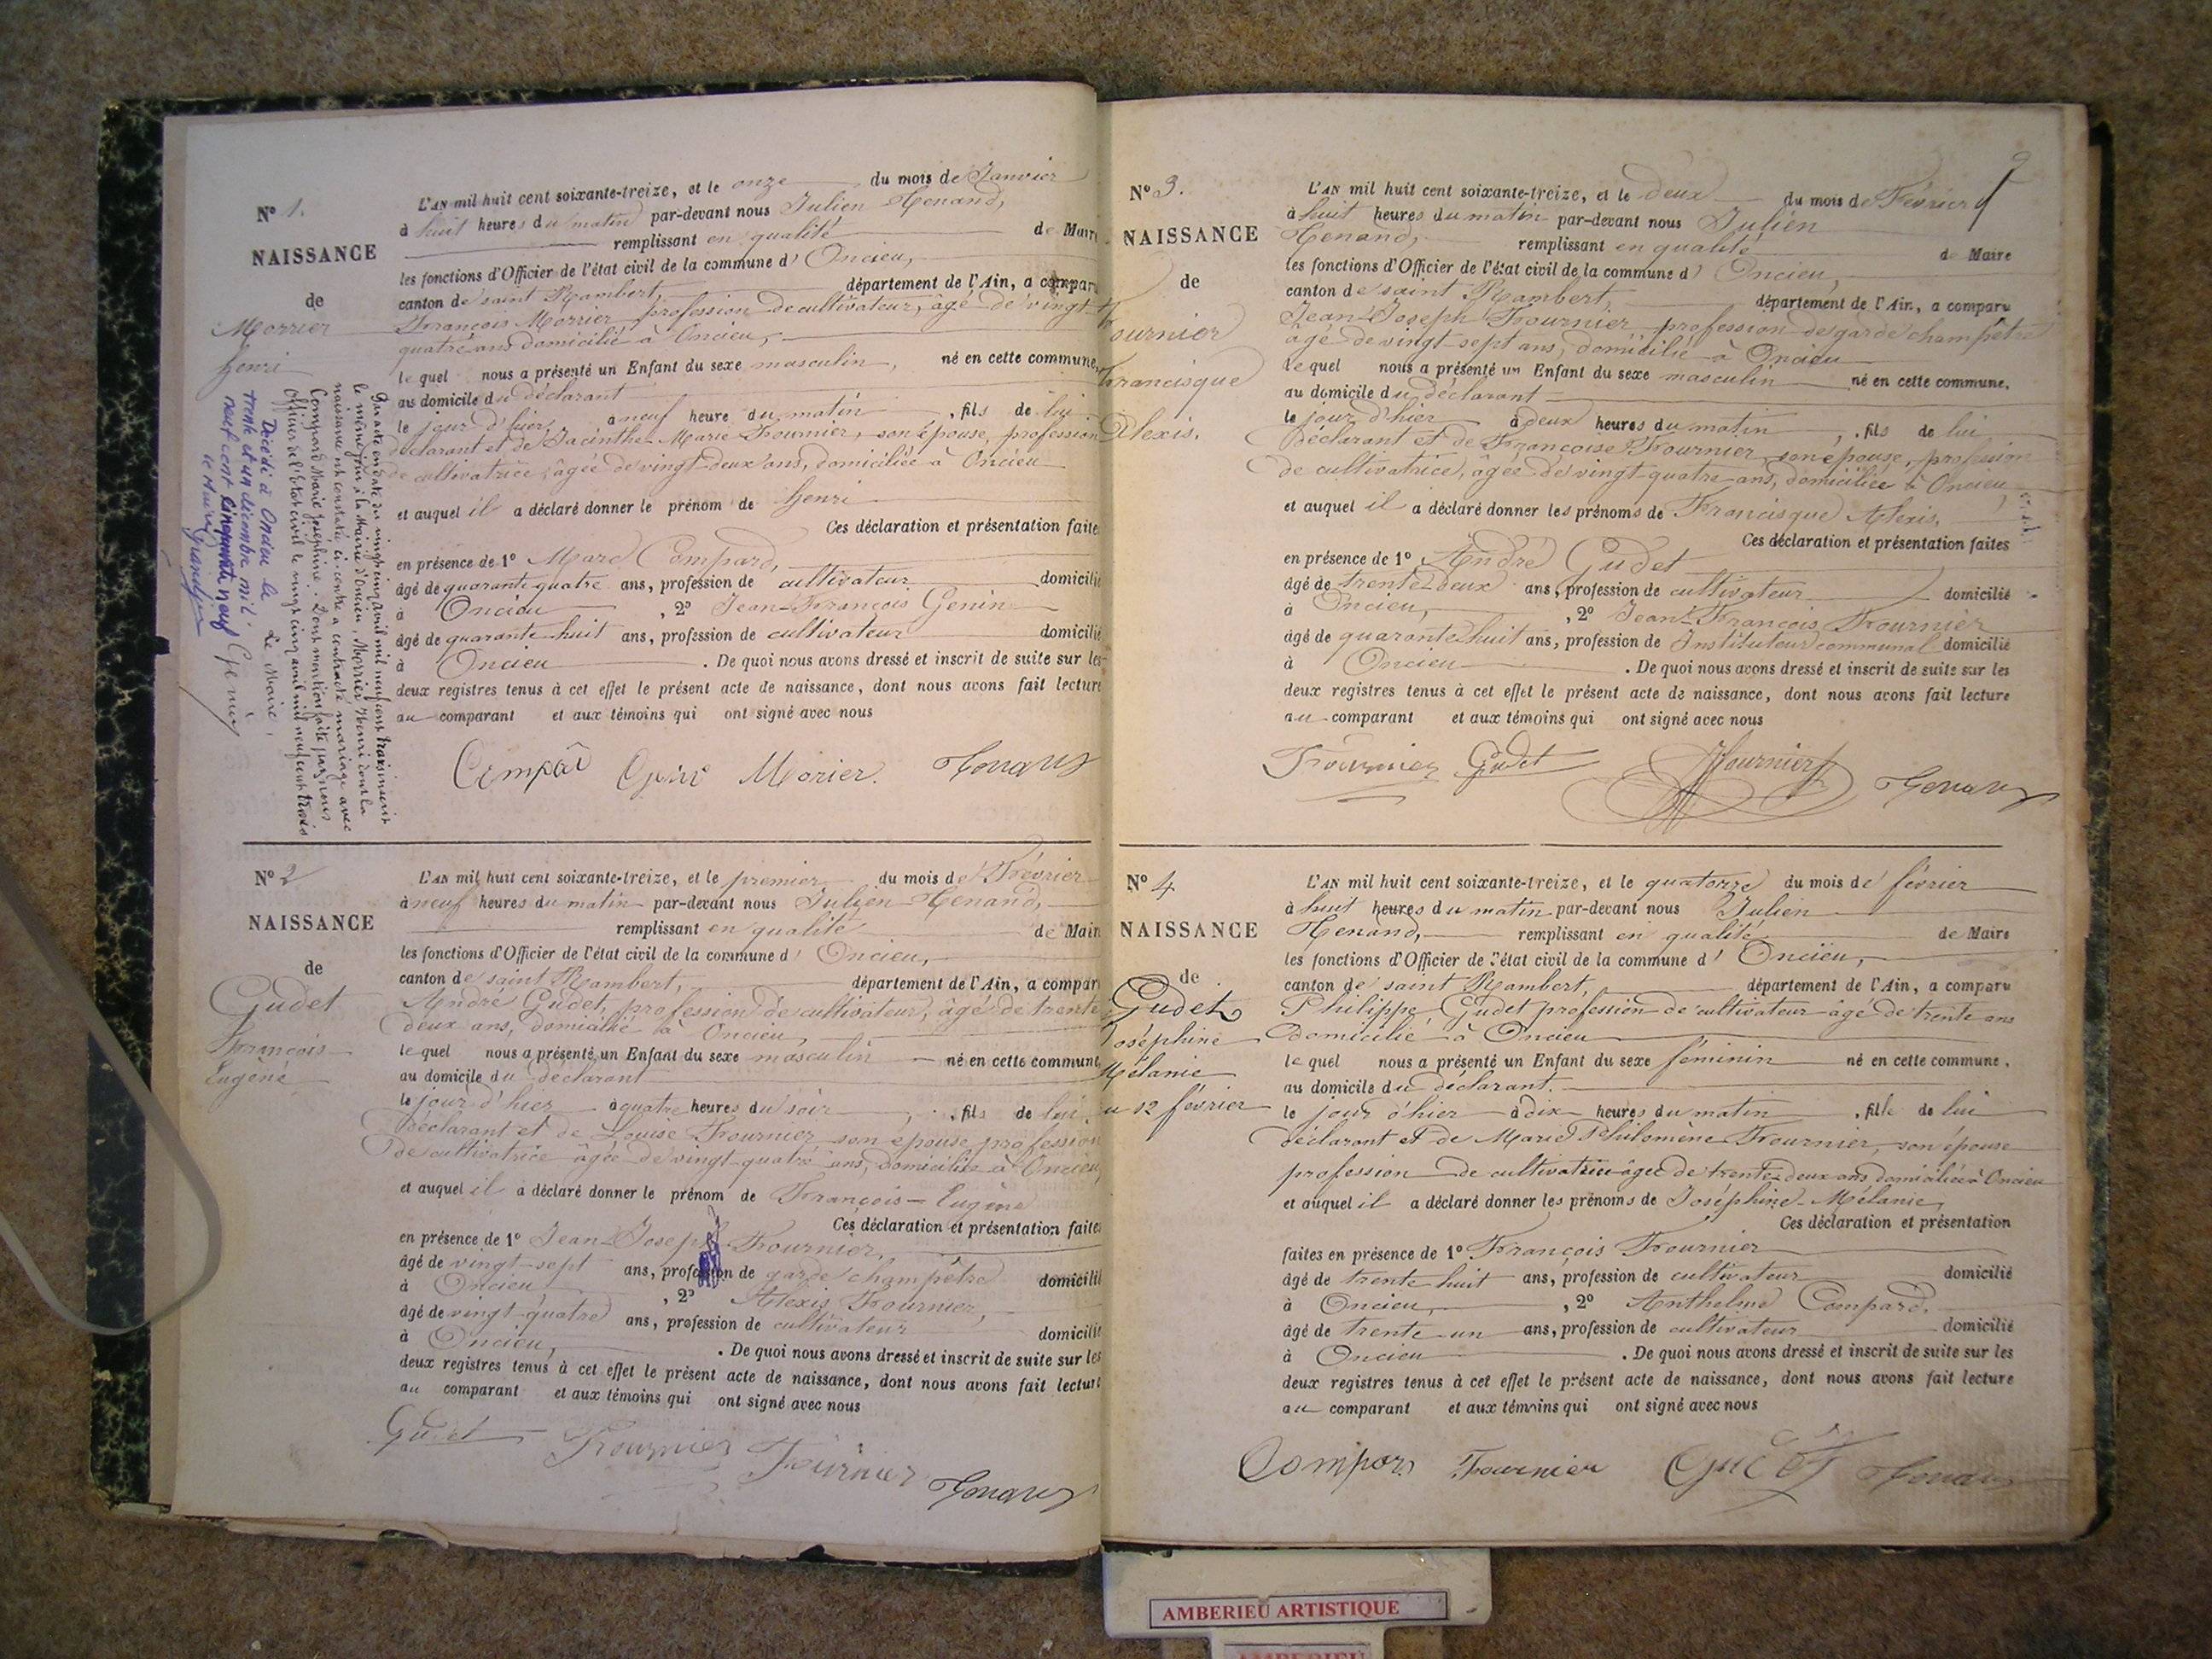 N° 1.
NAISSANCE
de
Morrier
Henri
L'AN mil huit cent soixante-treize, et le onze du mois de Janvier
à huit heures du matin par-devant nous Julien Henand,
remplissant en qualité de Maire
les fonctions d'Officier de l'état civil de la commune d' Oncieu,
canton de saint Rambert, département de l'Ain, a compar
François Morrier profession de cultivateur, âgé de vingt-
quatre ans domicilié à Oncieu,
le quel nous a présenté un Enfant du sexe masculin, né en cette commune,
au domicile du déclarant
le jour d'hier, à neuf heure du matin, fils de lui
déclarant et de Jacinthe-Marie Fournier, son épouse, profession
de cultivatrice, âgée de vingt-deux ans, domiciliée à Oncieu
et auquel il a déclaré donner le prénom de Henri
Ces déclaration et présentation faites
en présence de 1° Marc Compard,
âgé de quarante-quatre ans, profession de cultivateur domicilié
à Oncieu, 2° Jean-François Genin
âgé de quarante-huit ans, profession de cultivateur domicilié
à Oncieu. De quoi nous avons dressé et inscrit de suite sur les
deux registres tenus à cet effet le présent acte de naissance, dont nous avons fait lecture
au comparant et aux témoins qui ont signé avec nous
Morier. Henand
Par acte en date du vingt cinq avril mil neuf cent trois inscrit
le même jour à la Mairie d'Oncieu, Morrier Henri dont la
naissance est constatée ci-contre a contracté mariage avec
Compard Marie Joséphine. Dont mention faite par nous
Officier de l'Etat civil le vingt cinq avril mil neuf cent trois
Le Maire,
Genin
Décédé à Oncieu le
trente et un décembre mil
neuf cent cinquante neuf
le Maire
N° 2
NAISSANCE
de
Gudet
François
Eugène
L'AN mil huit cent soixante-treize, et le premier du mois de Février
à neuf heures du matin par-devant nous Julien Henand,
remplissant en qualité de Maire
les fonctions d'Officier de l'état civil de la commune d' Oncieu,
canton de saint Rambert, département de l'Ain, a compar
André Gudet, profession de cultivateur, âgé de trente
deux ans, domicilié à Oncieu,
le quel nous a présenté un Enfant du sexe masculin né en cette commune
au domicile du déclarant
le jour d'hier à quatre heures du soir, fils de lui
déclarant et de Louise Fournier son épouse, profession
de cultivatrice âgée de vingt-quatre ans, domiciliée à Oncieu,
et auquel il a déclaré donner le prénom de François-Eugène
Ces déclaration et présentation faites
en présence de 1° Jean-Joseph Fournier,
âgé de vingt-sept ans, profession de garde champêtre domicilié
à Oncieu, 2° Alexis Fournier,
âgé de vingt-quatre ans, profession de cultivateur domicilié
à Oncieu, . De quoi nous avons dressé et inscrit de suite sur les
deux registres tenus à cet effet le présent acte de naissance, dont nous avons fait lecture
au comparant et aux témoins qui ont signé avec nous
Gudet Fournier Fournier
Henand
9
N° 3.
NAISSANCE
de
Fournier
Francisque
Alexis.
L'AN mil huit cent soixante-treize, et le deux du mois de Février
à huit heures du matin par-devant nous Julien
Henand, remplissant en qualité de Maire
les fonctions d'Officier de l'état civil de la commune d' Oncieu,
canton de saint Rambert, département de l'Ain, a comparu
Jean-Joseph Fournier profession de garde champêtre
âgé de vingt-sept ans, domicilié à Oncieu
le quel nous a présenté un Enfant du sexe masculin né en cette commune,
au domicile du déclarant
le jour d'hier à deux heures du matin, fils de lui
déclarant et de Françoise Fournier, son épouse, profession
de cultivatrice, âgée de vingt-quatre ans, domiciliée à Oncieu,
et auquel il a déclaré donner les prénoms de Francisque Alexis,
Ces déclaration et présentation faites
en présence de 1° André Gudet
âgé de trente-deux ans, profession de cultivateur domicilié
à Oncieu, 2° Jean-François Fournier
âgé de quarante-huit ans, profession de Instituteur communal domicilié
à Oncieu. De quoi nous avons dressé et inscrit de suite sur les
deux registres tenus à cet effet le présent acte de naissance, dont nous avons fait lecture
au comparant et aux témoins qui ont signé avec nous
Fournier Gudet Fournier Henand
N° 4
NAISSANCE
de
Gudet
Joséphine
Mélanie
12 février
L'AN mil huit cent soixante-treize, et le quatorze du mois de février
à huit heures du matin par-devant nous Julien
Henand, remplissant en qualité de Maire
les fonctions d'Officier de l'état civil de la commune d' Oncieu,
canton de saint Rambert, département de l'Ain, a comparu
Philippe Gudet profession de cultivateur âgé de trente ans
domicilié à Oncieu
le quel nous a présenté un Enfant du sexe féminin né en cette commune,
au domicile du déclarant.
le jour d'hier à dix heures du matin, fille de lui
déclarant et de Marie Philomène Fournier, son épouse
profession de cultivatrice âgée de trente-deux ans domiciliée à Oncieu
et auquel il a déclaré donner les prénoms de Joséphine-Mélanie
Ces déclaration et présentation
faites en présence de 1° François Fournier
âgé de trente huit ans, profession de cultivateur domicilié
à Oncieu, 2° Anthelme Compard.
âgé de trente-un ans, profession de cultivateur domicilié
à Oncieu. De quoi nous avons dressé et inscrit de suite sur les
deux registres tenus à cet effet le présent acte de naissance, dont nous avons fait lecture
au comparant et aux témoins qui ont signé avec nous
Fournier Gudet Henand
AMBERIEU ARTISTIQUE
AMBERIEU